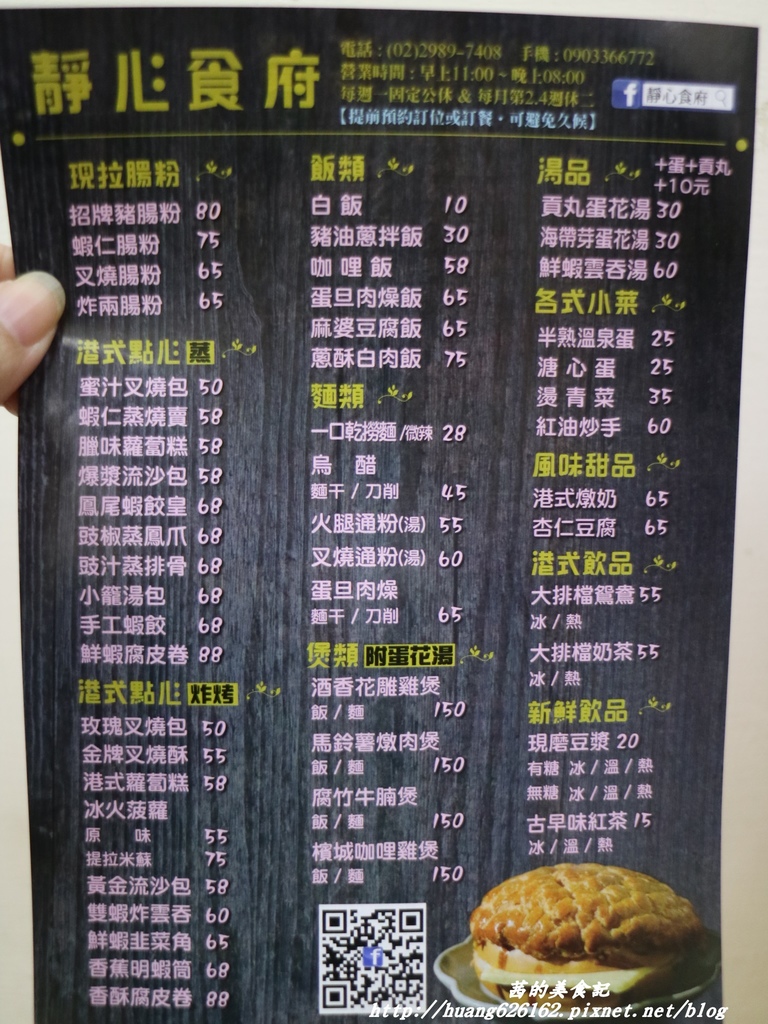 靜心食府
電話：(02)2989-7408 手機：0903366772
營業時間：早上11:00～晚上08:00
每週一固定公休 & 每月第2.4週休二
【提前預約訂位或訂餐，可避免久候】
f 靜心食府
現拉腸粉
招牌豬腸粉 80
蝦仁腸粉 75
叉燒腸粉 65
炸兩腸粉 65
港式點心 蒸
蜜汁叉燒包 50
蝦仁蒸燒賣 58
臘味蘿蔔糕 58
爆漿流沙包 58
鳳尾蝦餃皇 68
豉椒蒸鳳爪 68
豉汁蒸排骨 68
小籠湯包 68
手工蝦餃 68
鮮蝦腐皮卷 88
港式點心 炸烤
玫瑰叉燒包 50
金牌叉燒酥 55
港式蘿蔔糕 58
冰火菠蘿
原 味 55
提拉米蘇 75
黃金流沙包 58
雙蝦炸雲吞 60
鮮蝦韭菜角 65
香蕉明蝦筒 68
香酥腐皮卷 88
飯類
白飯 10
豬油蔥拌飯 30
咖哩飯 58
蛋旦肉燥飯 65
麻婆豆腐飯 65
蔥酥白肉飯 75
麵類
一口乾撈麵/微辣 28
烏 醋
麵干 / 刀削 45
火腿通粉(湯) 55
叉燒通粉(湯) 60
蛋旦肉燥
麵干 / 刀削 65
煲類 附蛋花湯
酒香花雕雞煲
飯 / 麵 150
馬鈴薯燉肉煲
飯 / 麵 150
腐竹牛腩煲
飯 / 麵 150
檳城咖哩雞煲
飯 / 麵 150
湯品 +蛋+貢丸
+10元
貢丸蛋花湯 30
海帶芽蛋花湯 30
鮮蝦雲吞湯 60
各式小菜
半熟溫泉蛋 25
溏心蛋 25
燙青菜 35
紅油炒手 60
風味甜品
港式燉奶 65
杏仁豆腐 65
港式飲品
大排檔鴛鴦 55
冰 / 熱
大排檔奶茶 55
冰 / 熱
新鮮飲品
現磨豆漿 20
有糖 冰 / 溫 / 熱
無糖 冰 / 溫 / 熱
古早味紅茶 15
冰 / 溫 / 熱
茜的美食記
http://huang626162.pixnet.net/blog